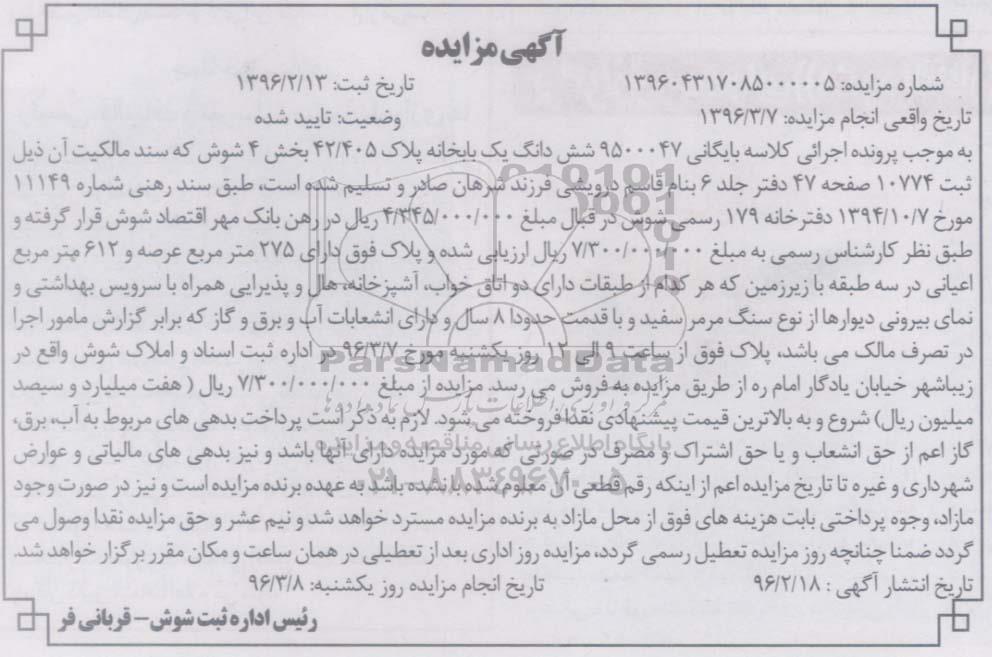 آگهی مزایده
شماره مزایده: ۱۳۹۶۰۴۳۱۷۰۸۵۰۰۰۰۰۵ تاریخ ثبت: ۱۳۹۶/۲/۱۳
تاریخ واقعی انجام مزایده: ۱۳۹۶/۳/۷ وضعیت: تایید شده
به موجب پرونده اجرائی کلاسه بایگانی ۹۵۰۰۰۴۷ شش دانگ یک بابخانه پلاک ۴۲/۴۰۵ بخش ۴ شوش که سند مالکیت آن ذیل
ثبت ۱۰۷۷۴ صفحه ۴۷ دفتر جلد ۶ بنام قاسم درویشی فرزند شرهان صادر و تسلیم شده است، طبق سند رهنی شماره ۱۱۱۴۹
مورخ ۱۳۹۴/۱۰/۷ دفترخانه ۱۷۹ رسمی شوش در قبال مبلغ ۴/۳۴۵/۰۰۰/۰۰۰ ریال در رهن بانک مهر اقتصاد شوش قرار گرفته و
طبق نظر کارشناس رسمی به مبلغ ۷/۳۰۰/۰۰۰/۰۰۰ ریال ارزیابی شده و پلاک فوق دارای ۲۷۵ متر مربع عرصه و ۶۱۲ متر مربع
اعیانی در سه طبقه با زیرزمین که هر کدام از طبقات دارای دو اتاق خواب، آشپزخانه، هال و پذیرایی همراه با سرویس بهداشتی و
نمای بیرونی دیوارها از نوع سنگ مرمر سفید و با قدمت حدودا ۸ سال و دارای انشعابات آب و برق و گاز که برابر گزارش مامور اجرا
در تصرف مالک می باشد، پلاک فوق از ساعت ۹ الی ۱۲ روز یکشنبه مورخ ۹۶/۳/۷ در اداره ثبت اسناد و املاک شوش واقع در
زیباشهر خیابان یادگار امام ره از طریق مزایده به فروش می رسد. مزایده از مبلغ ۷/۳۰۰/۰۰۰/۰۰۰ ریال ( هفت میلیارد و سیصد
میلیون ریال) شروع و به بالاترین قیمت پیشنهادی نقدا فروخته می شود. لازم به ذکر است پرداخت بدهی های مربوط به آب، برق،
گاز اعم از حق انشعاب و یا حق اشتراک و مصرف در صورتی که مورد مزایده دارای آنها باشد و نیز بدهی های مالیاتی و عوارض
شهرداری و غیره تا تاریخ مزایده اعم از اینکه رقم قطعی آن معلوم شده یا نشده باشد به عهده برنده مزایده است و نیز در صورت وجود
مازاد، وجوه پرداختی بابت هزینه های فوق از محل مازاد به برنده مزایده مسترد خواهد شد و نیم عشر و حق مزایده نقدا وصول می
گردد ضمنا چنانچه روز مزایده تعطیل رسمی گردد، مزایده روز اداری بعد از تعطیلی در همان ساعت و مکان مقرر برگزار خواهد شد.
تاریخ انتشار آگهی : ۹۶/۲/۱۸ تاریخ انجام مزایده روز یکشنبه: ۹۶/۳/۸
رئیس اداره ثبت شوش – قربانی فر
ParsNamadData
پایگاه اطلاع رسانی مناقصه و مزایده